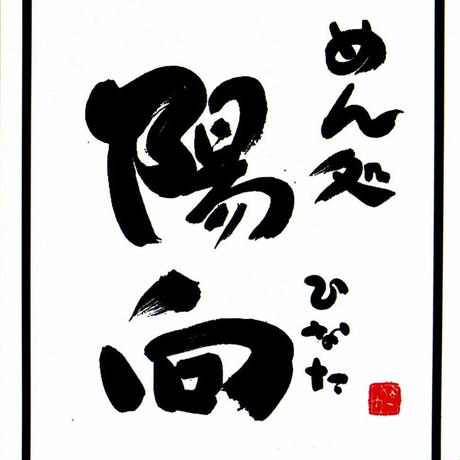 めん処
陽向
ひなた